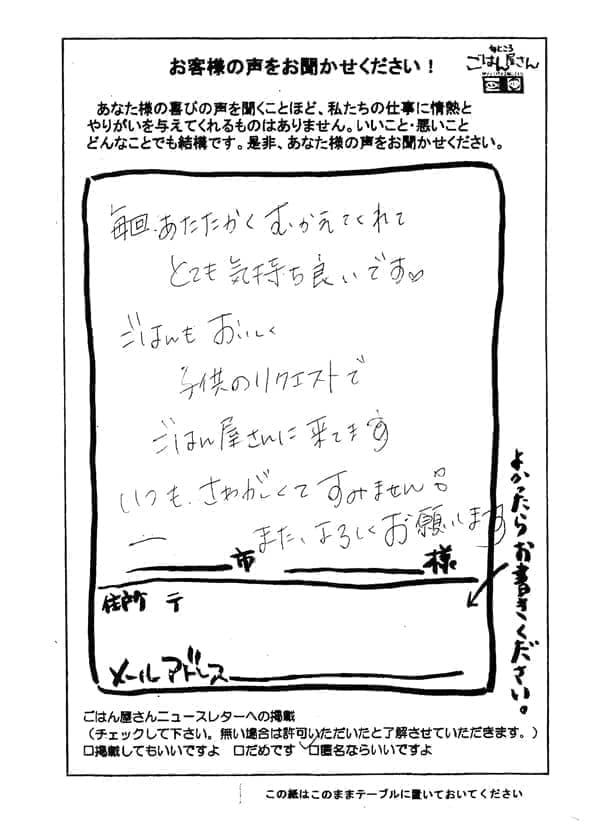 旬どころ
ごはん屋さん
お客様の声をお聞かせください！
あなた様の喜びの声を聞くことほど、私たちの仕事に情熱と
やりがいを与えてくれるものはありません。いいこと・悪いこと
どんなことでも結構です。是非、あなた様の声をお聞かせください。
毎回、あたたかく むかえてくれて
とても気持ち良いです♡
ごはんも おいしく
子供のリクエストで
ごはん屋さんに 来てます
いつも、さわがしくて すみません
また、よろしくお願いします
市 様
よかったらお書きください。
住所 〒
メールアドレス
ごはん屋さんニュースレターへの掲載
（チェックして下さい。無い場合は許可いただいたと了解させていただきます。）
□掲載してもいいですよ □だめです □匿名ならいいですよ
この紙はこのままテーブルに置いておいてください